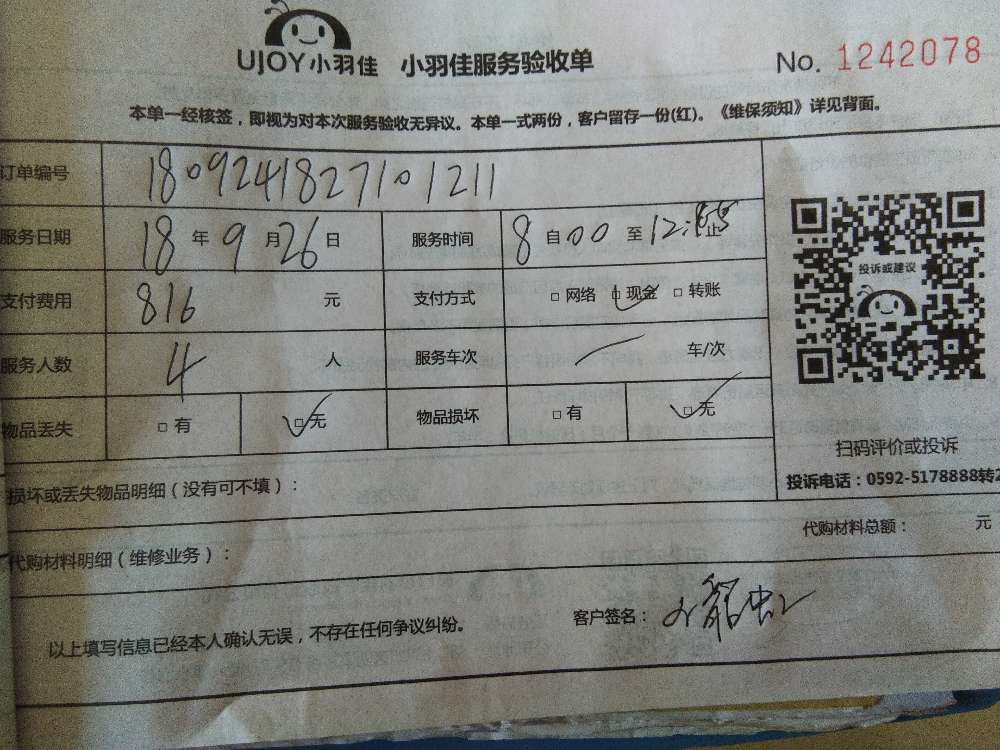 UJOY小羽佳 小羽佳服务验收单 No. 1242078
本单一经核签，即视为对本次服务验收无异议。本单一式两份，客户留存一份(红)。《维保须知》详见背面。
订单编号 180924182710 1211
服务日期 18 年 9 月 26 日 服务时间 8 自 00 至 12: 止
支付费用 816 元 支付方式 □ 网络 □ 现金 □ 转账
服务人数 4 人 服务车次 车/次
物品丢失 □ 有 □ 无 物品损坏 □ 有 □ 无
投诉或建议
扫码评价或投诉
投诉电话：0592-5178888转2
损坏或丢失物品明细（没有可不填）：
代购材料明细（维修业务）： 代购材料总额： 元
以上填写信息已经本人确认无误，不存在任何争议纠纷。 客户签名：